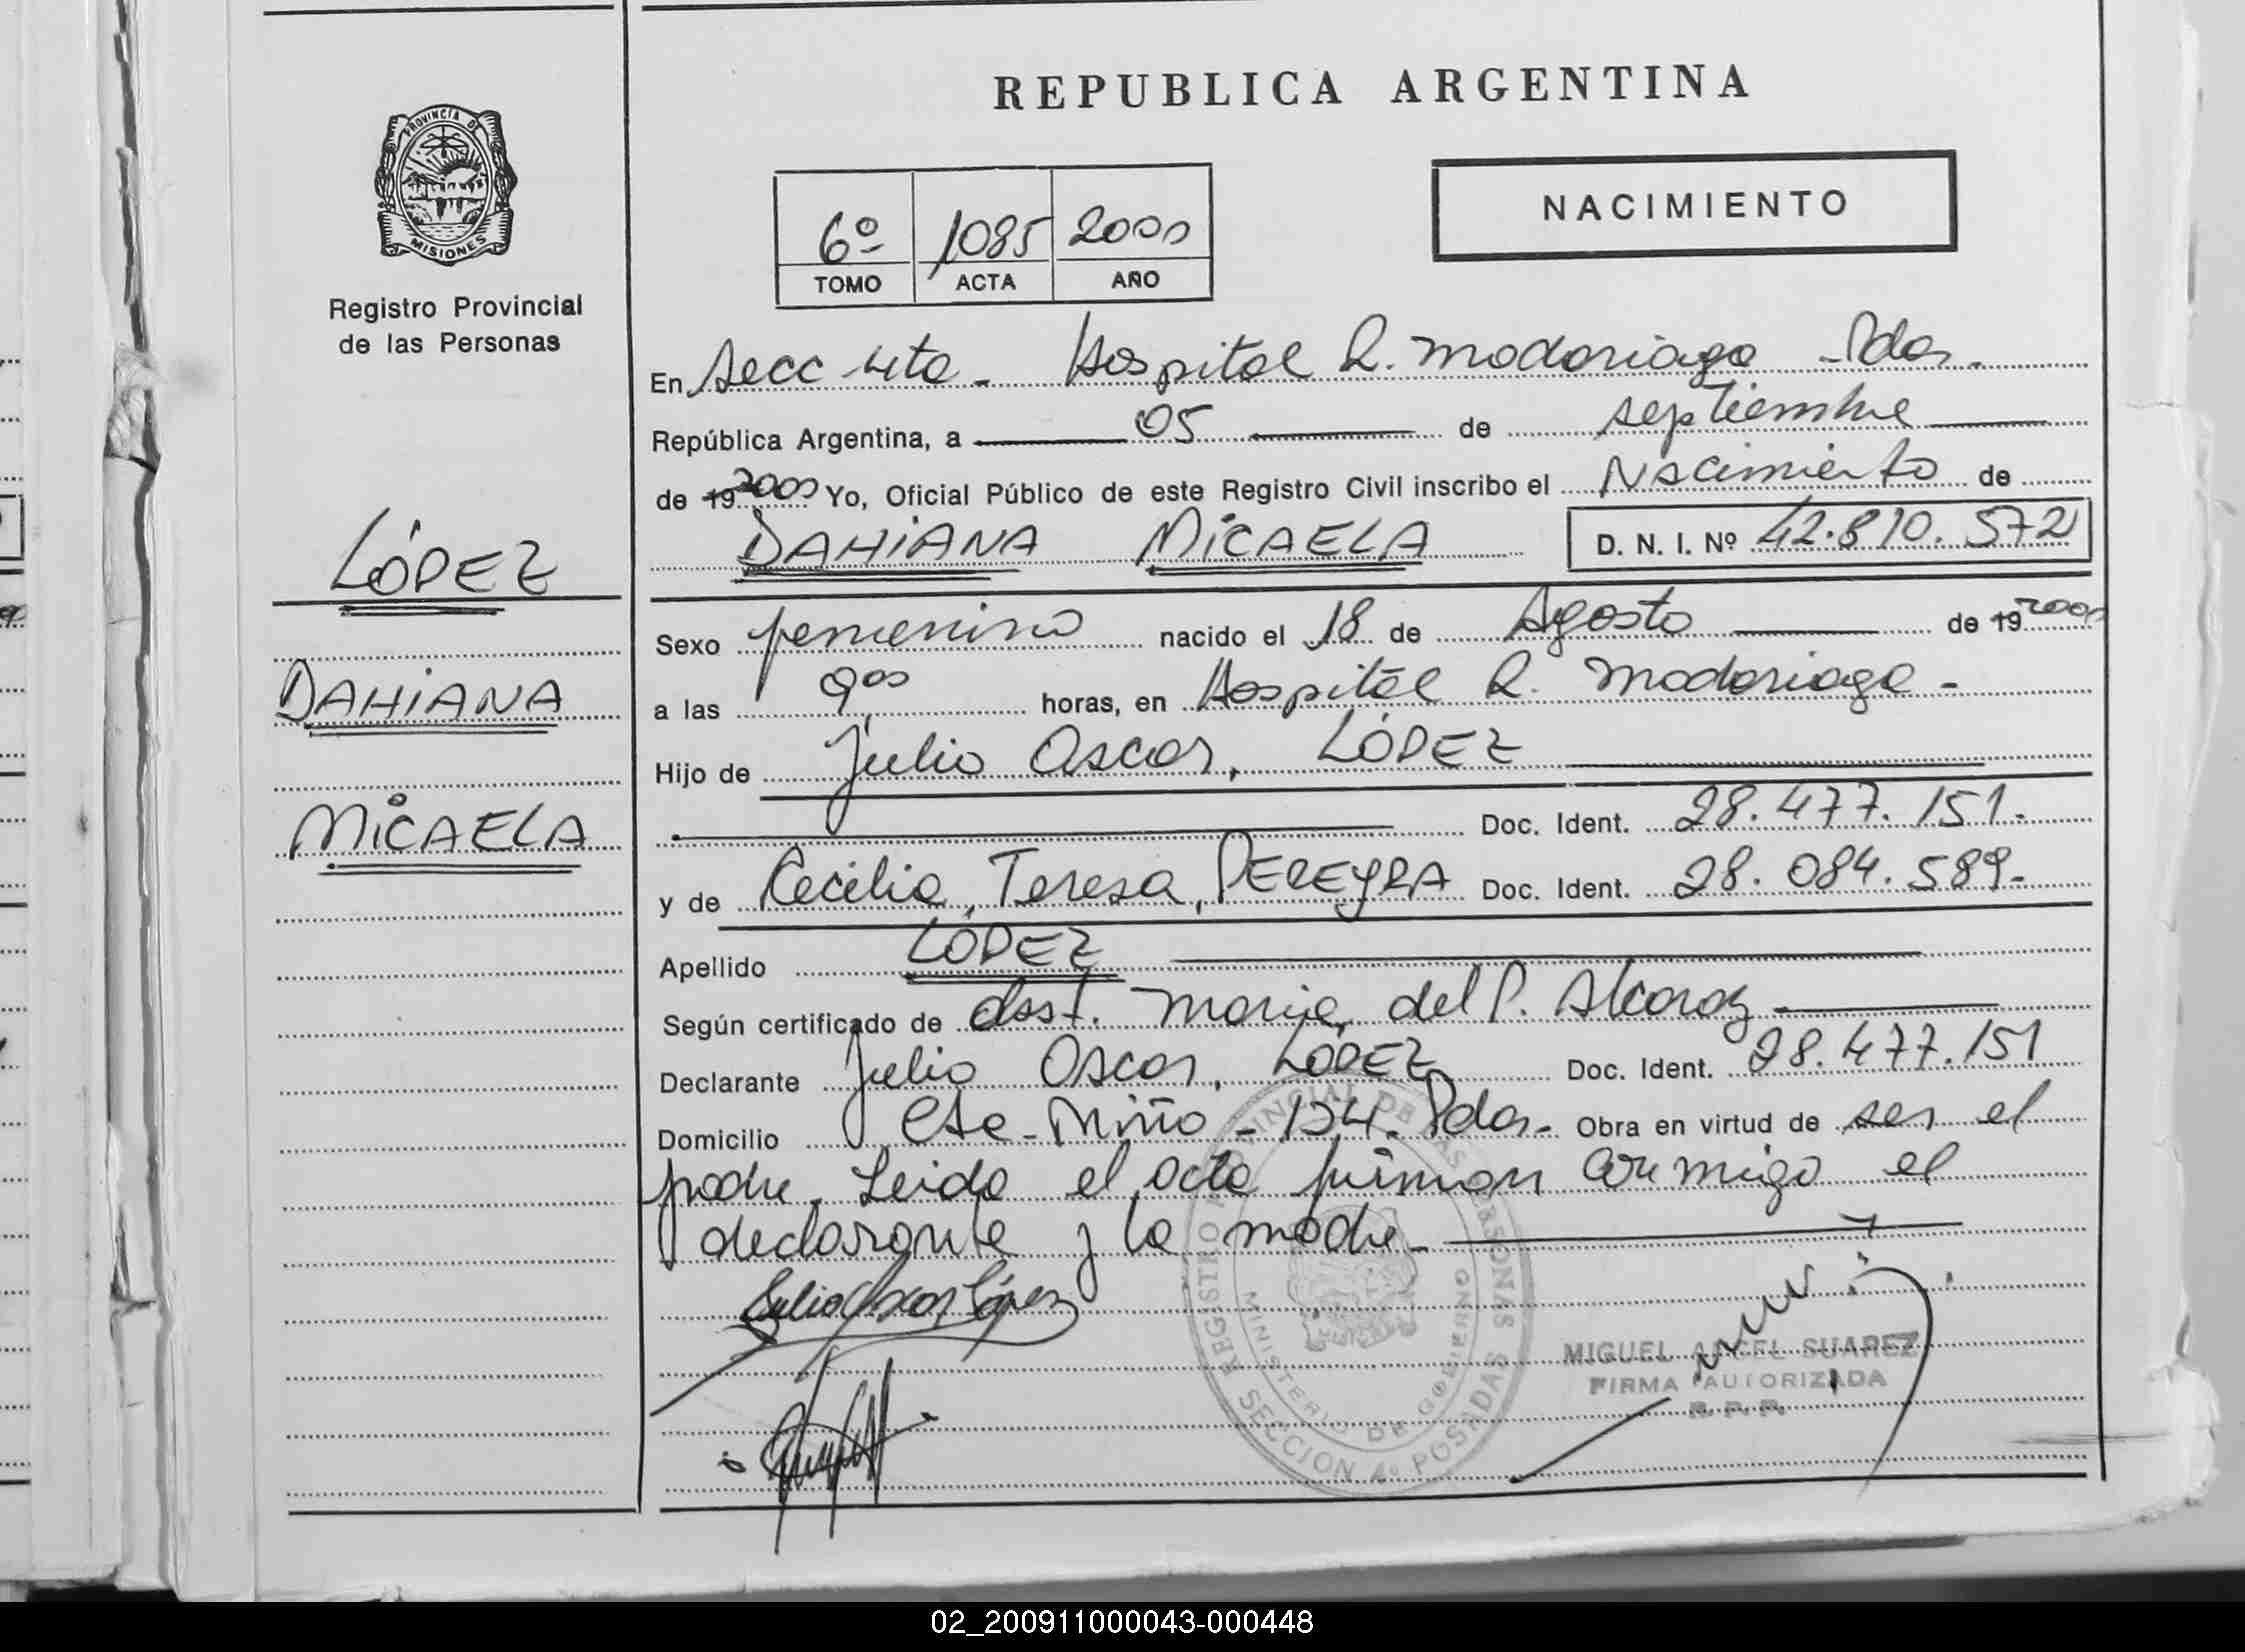 REPUBLICA ARGENTINA
PROVINCIA DE
MISIONES
Registro Provincial
de las Personas
6º 1085 2000
TOMO ACTA AÑO
NACIMIENTO
En Secc 4ta - Hospital R. Madariaga - Pdas.
República Argentina, a 05 de septiembre
de 19 2000 Yo, Oficial Público de este Registro Civil inscribo el Nacimiento de
DAHIANA MICAELA D. N. I. Nº 42.810.572
LÓPEZ
DAHIANA
MICAELA
Sexo femenino nacido el 18 de Agosto de 19 2000
a las 9 00 horas, en Hospital R. Madariaga -
Hijo de Julio Oscar, LÓPEZ
Doc. Ident. 28.477.151.-
y de Cecilia, Teresa, PEREYRA Doc. Ident. 28.084.589.-
Apellido LÓPEZ
Según certificado de Obst. Maria del P. Alcaraz -
Declarante Julio Oscar, LÓPEZ Doc. Ident. 28.477.151
Domicilio Miño - 124. Pdas.- Obra en virtud de ser el
padre. Leida el acta firman conmigo el
declarante y la madre -
Julio Oscar López
REGISTRO PROVINCIAL DE LAS PERSONAS
MINISTERIO DE GOBIERNO
SECCION 4º POSADAS
MIGUEL ANGEL SUAREZ
FIRMA AUTORIZADA
R. P. P.
02_200911000043-000448